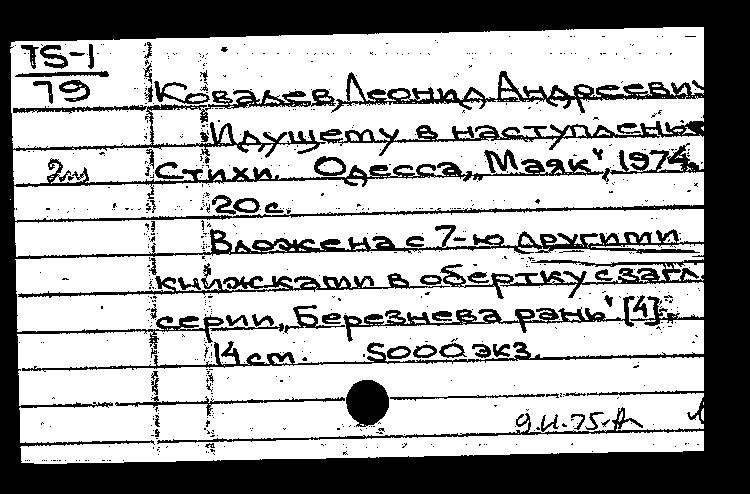 75-1
79
Ковалев, Леонид Андреевич
Идущему в наступленье
2 пз
Стихи. Одесса, „Маяк", 1974.
20 с.
Вложена с 7-ю другими
книжками в обертку с загл.
серии „Березнева рань" [4].
14 см. 5000 экз.